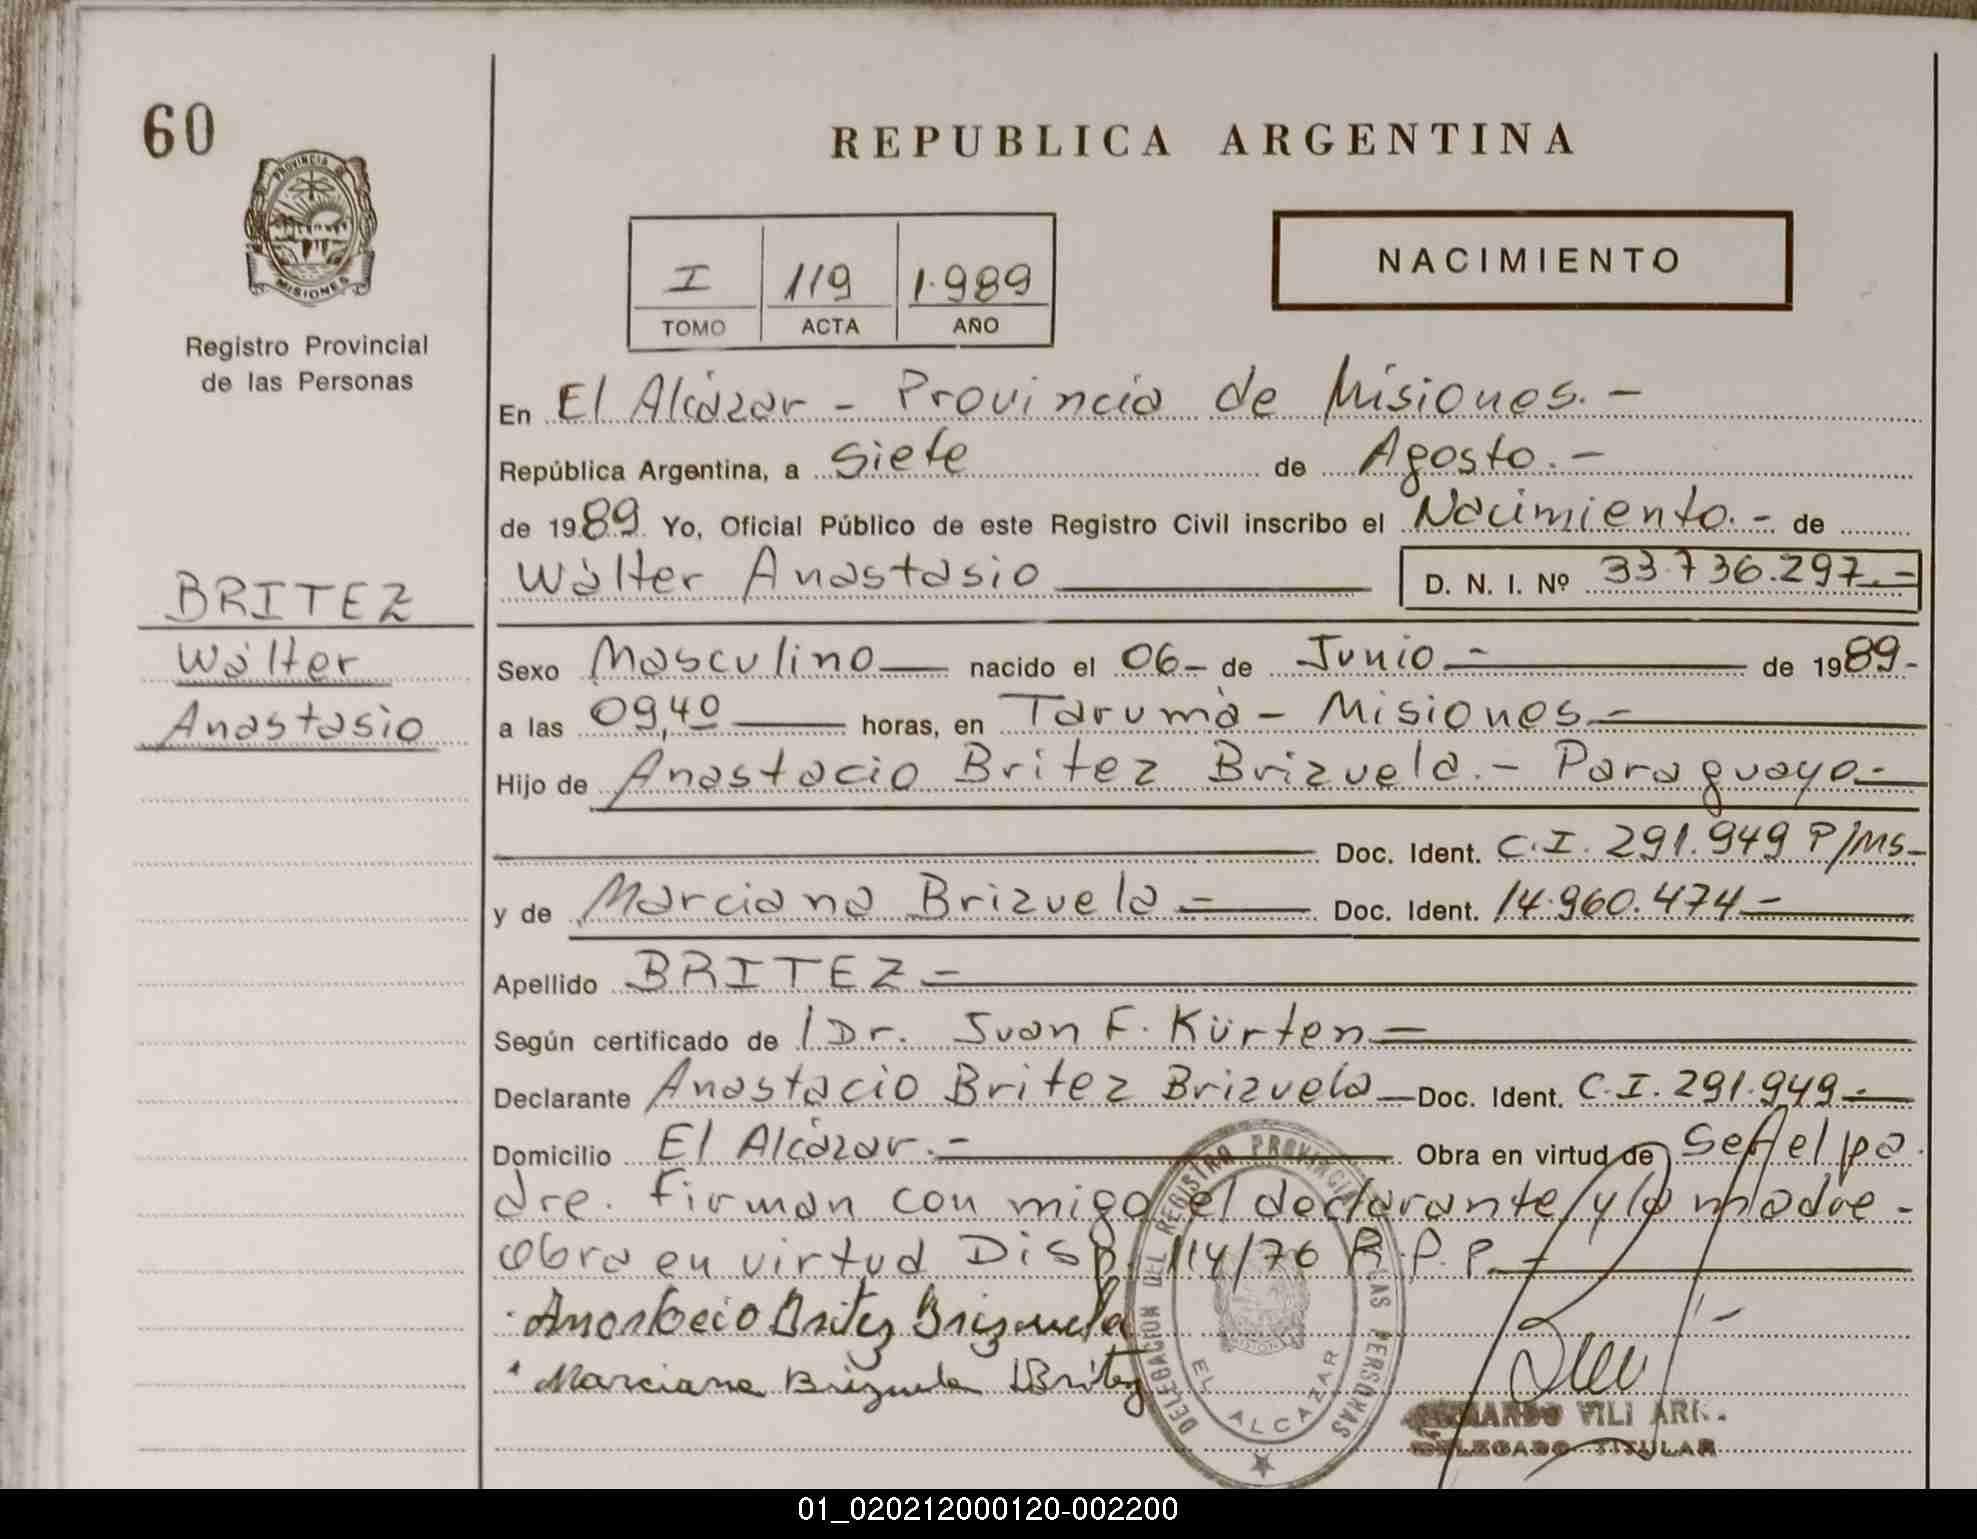 60
PROVINCIA DE
MISIONES
Registro Provincial
de las Personas
BRITEZ
Wálter
Anastasio
REPUBLICA ARGENTINA
I 119 1.989
TOMO ACTA AÑO
NACIMIENTO
En El Alcázar - Provincia de Misiones.-
República Argentina, a Siete de Agosto.-
de 1989. Yo, Oficial Público de este Registro Civil inscribo el Nacimiento.- de
Wálter Anastasio D. N. I. Nº 33.736.297.-
Sexo Masculino nacido el 06- de Junio - de 1989-
a las 09,40 horas, en Tarumà - Misiones -
Hijo de Anastacio Britez Brizuela.- Paraguayo-
Doc. Ident. C.I. 291.949 P/Ms-
y de Marciana Brizuela - Doc. Ident. 14.960.474-
Apellido BRITEZ -
Según certificado de Dr. Juan F. Kürten -
Declarante Anastacio Britez Brizuela - Doc. Ident. C.I. 291.949-
Domicilio El Alcázar.- Obra en virtud de Ser el pa
dre. Firman con migo el declarante y la madre -
Obra en virtud Disp. 114/76 R.P.P. -
Anastacio Britez Brizuela
Marciana Brizuela Britez
DELEGACION DEL REGISTRO PROVINCIAL LAS PERSONAS
EL ALCAZAR
DELEGADO TITULAR
01_020212000120-002200